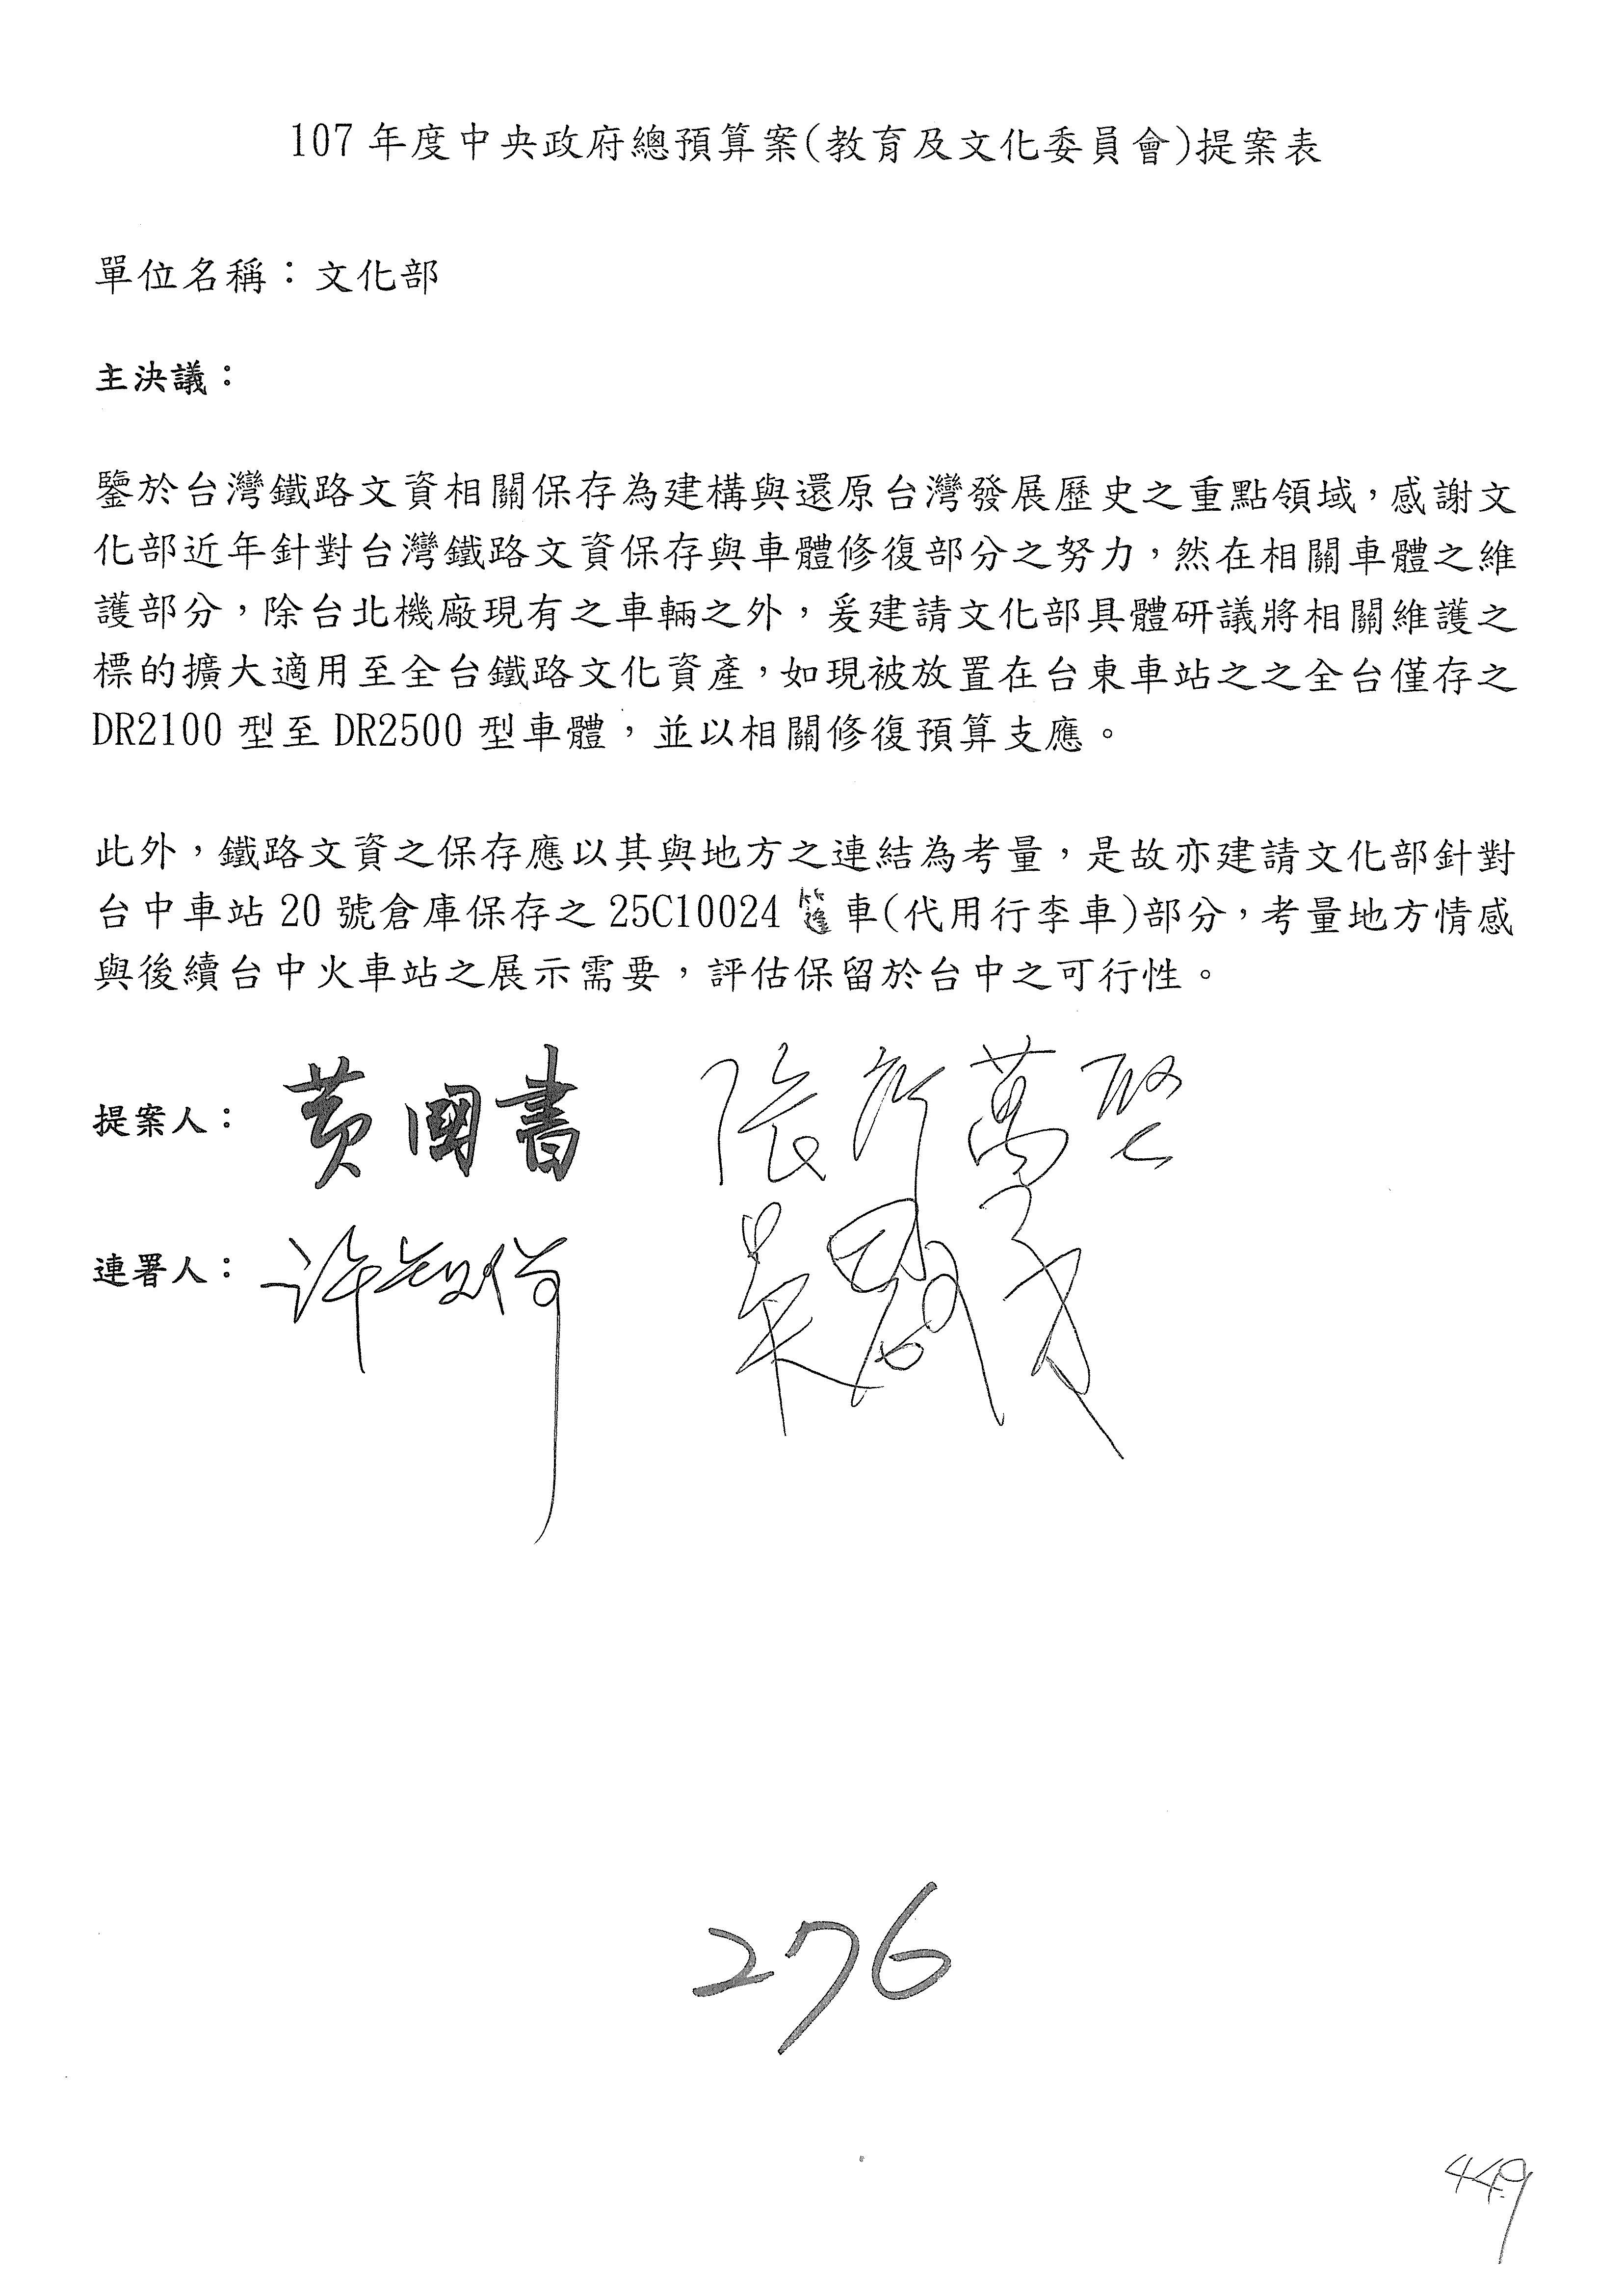 107年度中央政府總預算案(教育及文化委員會)提案表
單位名稱：文化部
主決議：
鑒於台灣鐵路文資相關保存為建構與還原台灣發展歷史之重點領域，感謝文
化部近年針對台灣鐵路文資保存與車體修復部分之努力，然在相關車體之維
護部分，除台北機廠現有之車輛之外，爰建請文化部具體研議將相關維護之
標的擴大適用至全台鐵路文化資產，如現被放置在台東車站之之全台僅存之
DR2100型至DR2500型車體，並以相關修復預算支應。
此外，鐵路文資之保存應以其與地方之連結為考量，是故亦建請文化部針對
台中車站20號倉庫保存之25C10024篷車(代用行李車)部分，考量地方情感
與後續台中火車站之展示需要，評估保留於台中之可行性。
提案人： 黃國書 張廖萬堅
連署人： 許智傑 吳思瑤
276
449